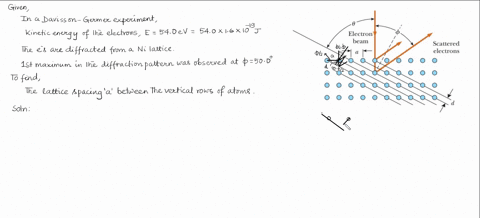 Given,
In a Davisson-Germer experiment,
Kinetic energy of the electrons, E = 54.0 eV = 54.0 × 1.6 × 10⁻¹⁹ J
The e's are diffracted from a Ni lattice.
1st maximum in the diffraction pattern was observed at ϕ=50.0°
To find,
The lattice spacing 'a' between the vertical rows of atoms.
Soln:
θ
ϕ
Electron
beam
Scattered
electrons
a
d